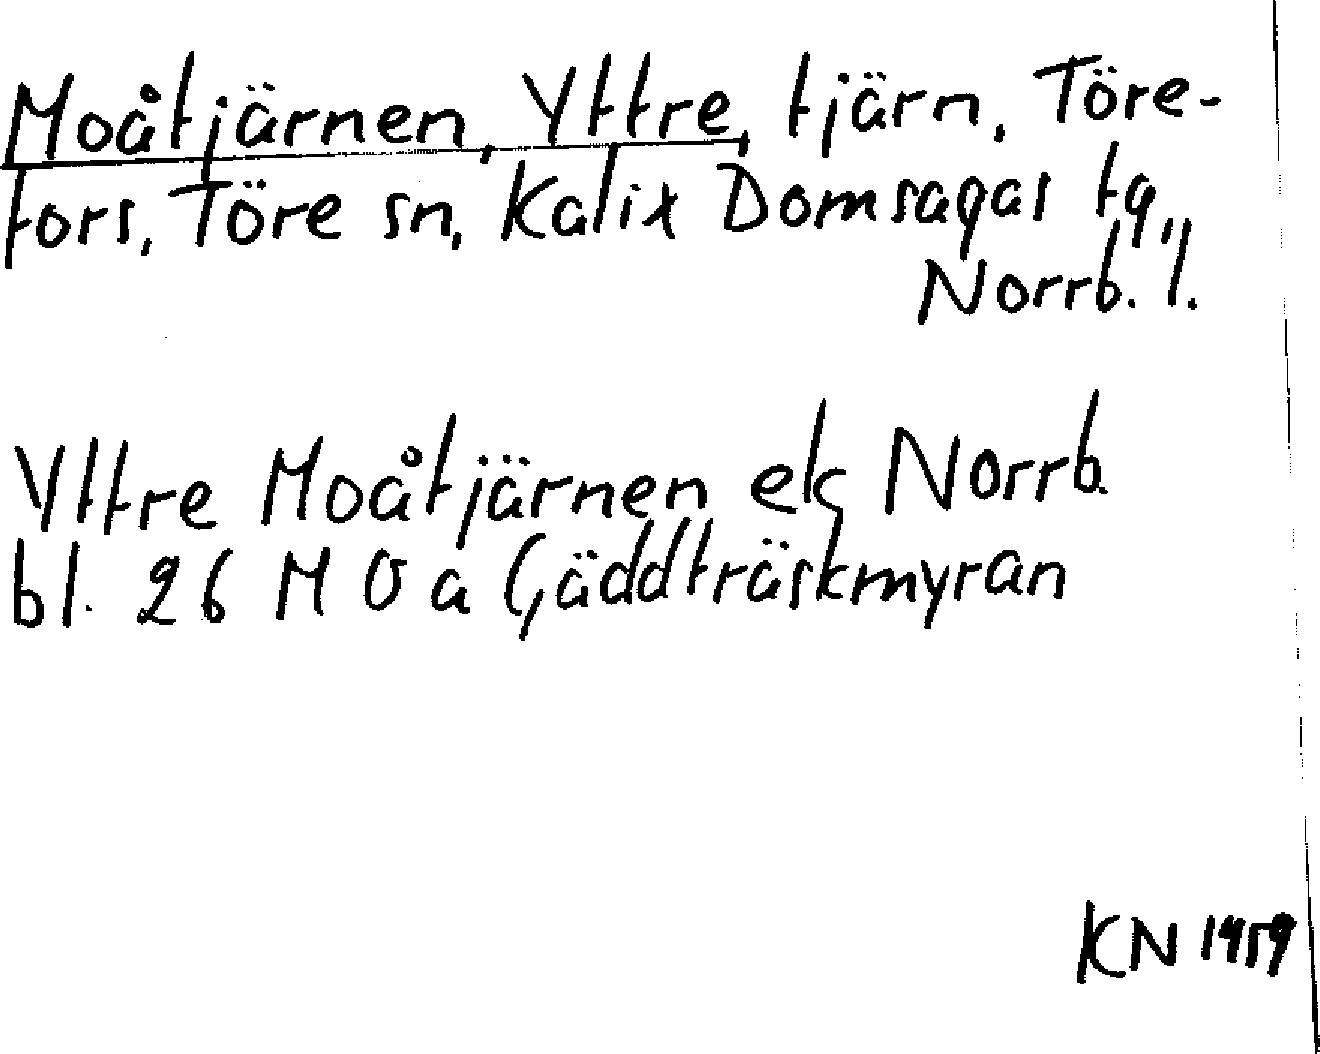 Moåtjärnen, Yttre, tjärn, Töre-
fors, Töre sn, Kalix Domsagas tg,
Norrb. l.
Yttre Moåtjärnen ek Norrb.
bl. 26 M O a Gäddträskmyran
KN 1959